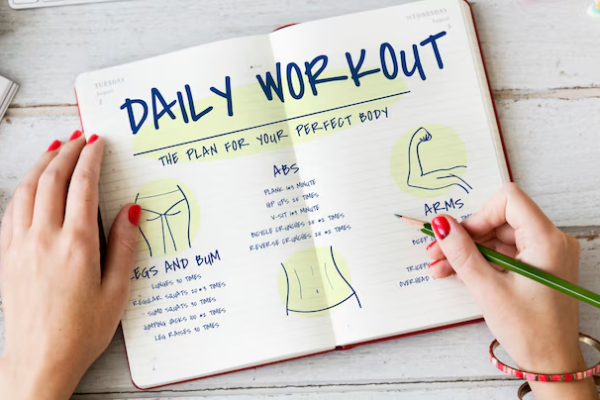 TUESDAY
WEDNESDAY
DAILY WORKOUT
THE PLAN FOR YOUR PERFECT BODY
ABS
PLANK 1x3 MINUTE
HIP UPS 20 TIMES
V-SIT 1x3 MINUTE
BICYCLE CRUNCHES 20 x2 TIMES
REVERSE CRUNCHES 20x2 TIMES
LEGS AND BUM
LUNGES 50 TIMES
REGULAR SQUATS 20x3 TIMES
SUMO SQUATS 30 TIMES
JUMPING JACKS 100 x2 TIMES
LEG RAISES 50 TIMES
ARMS
BICEP
TRICEPS
OVERHEAD